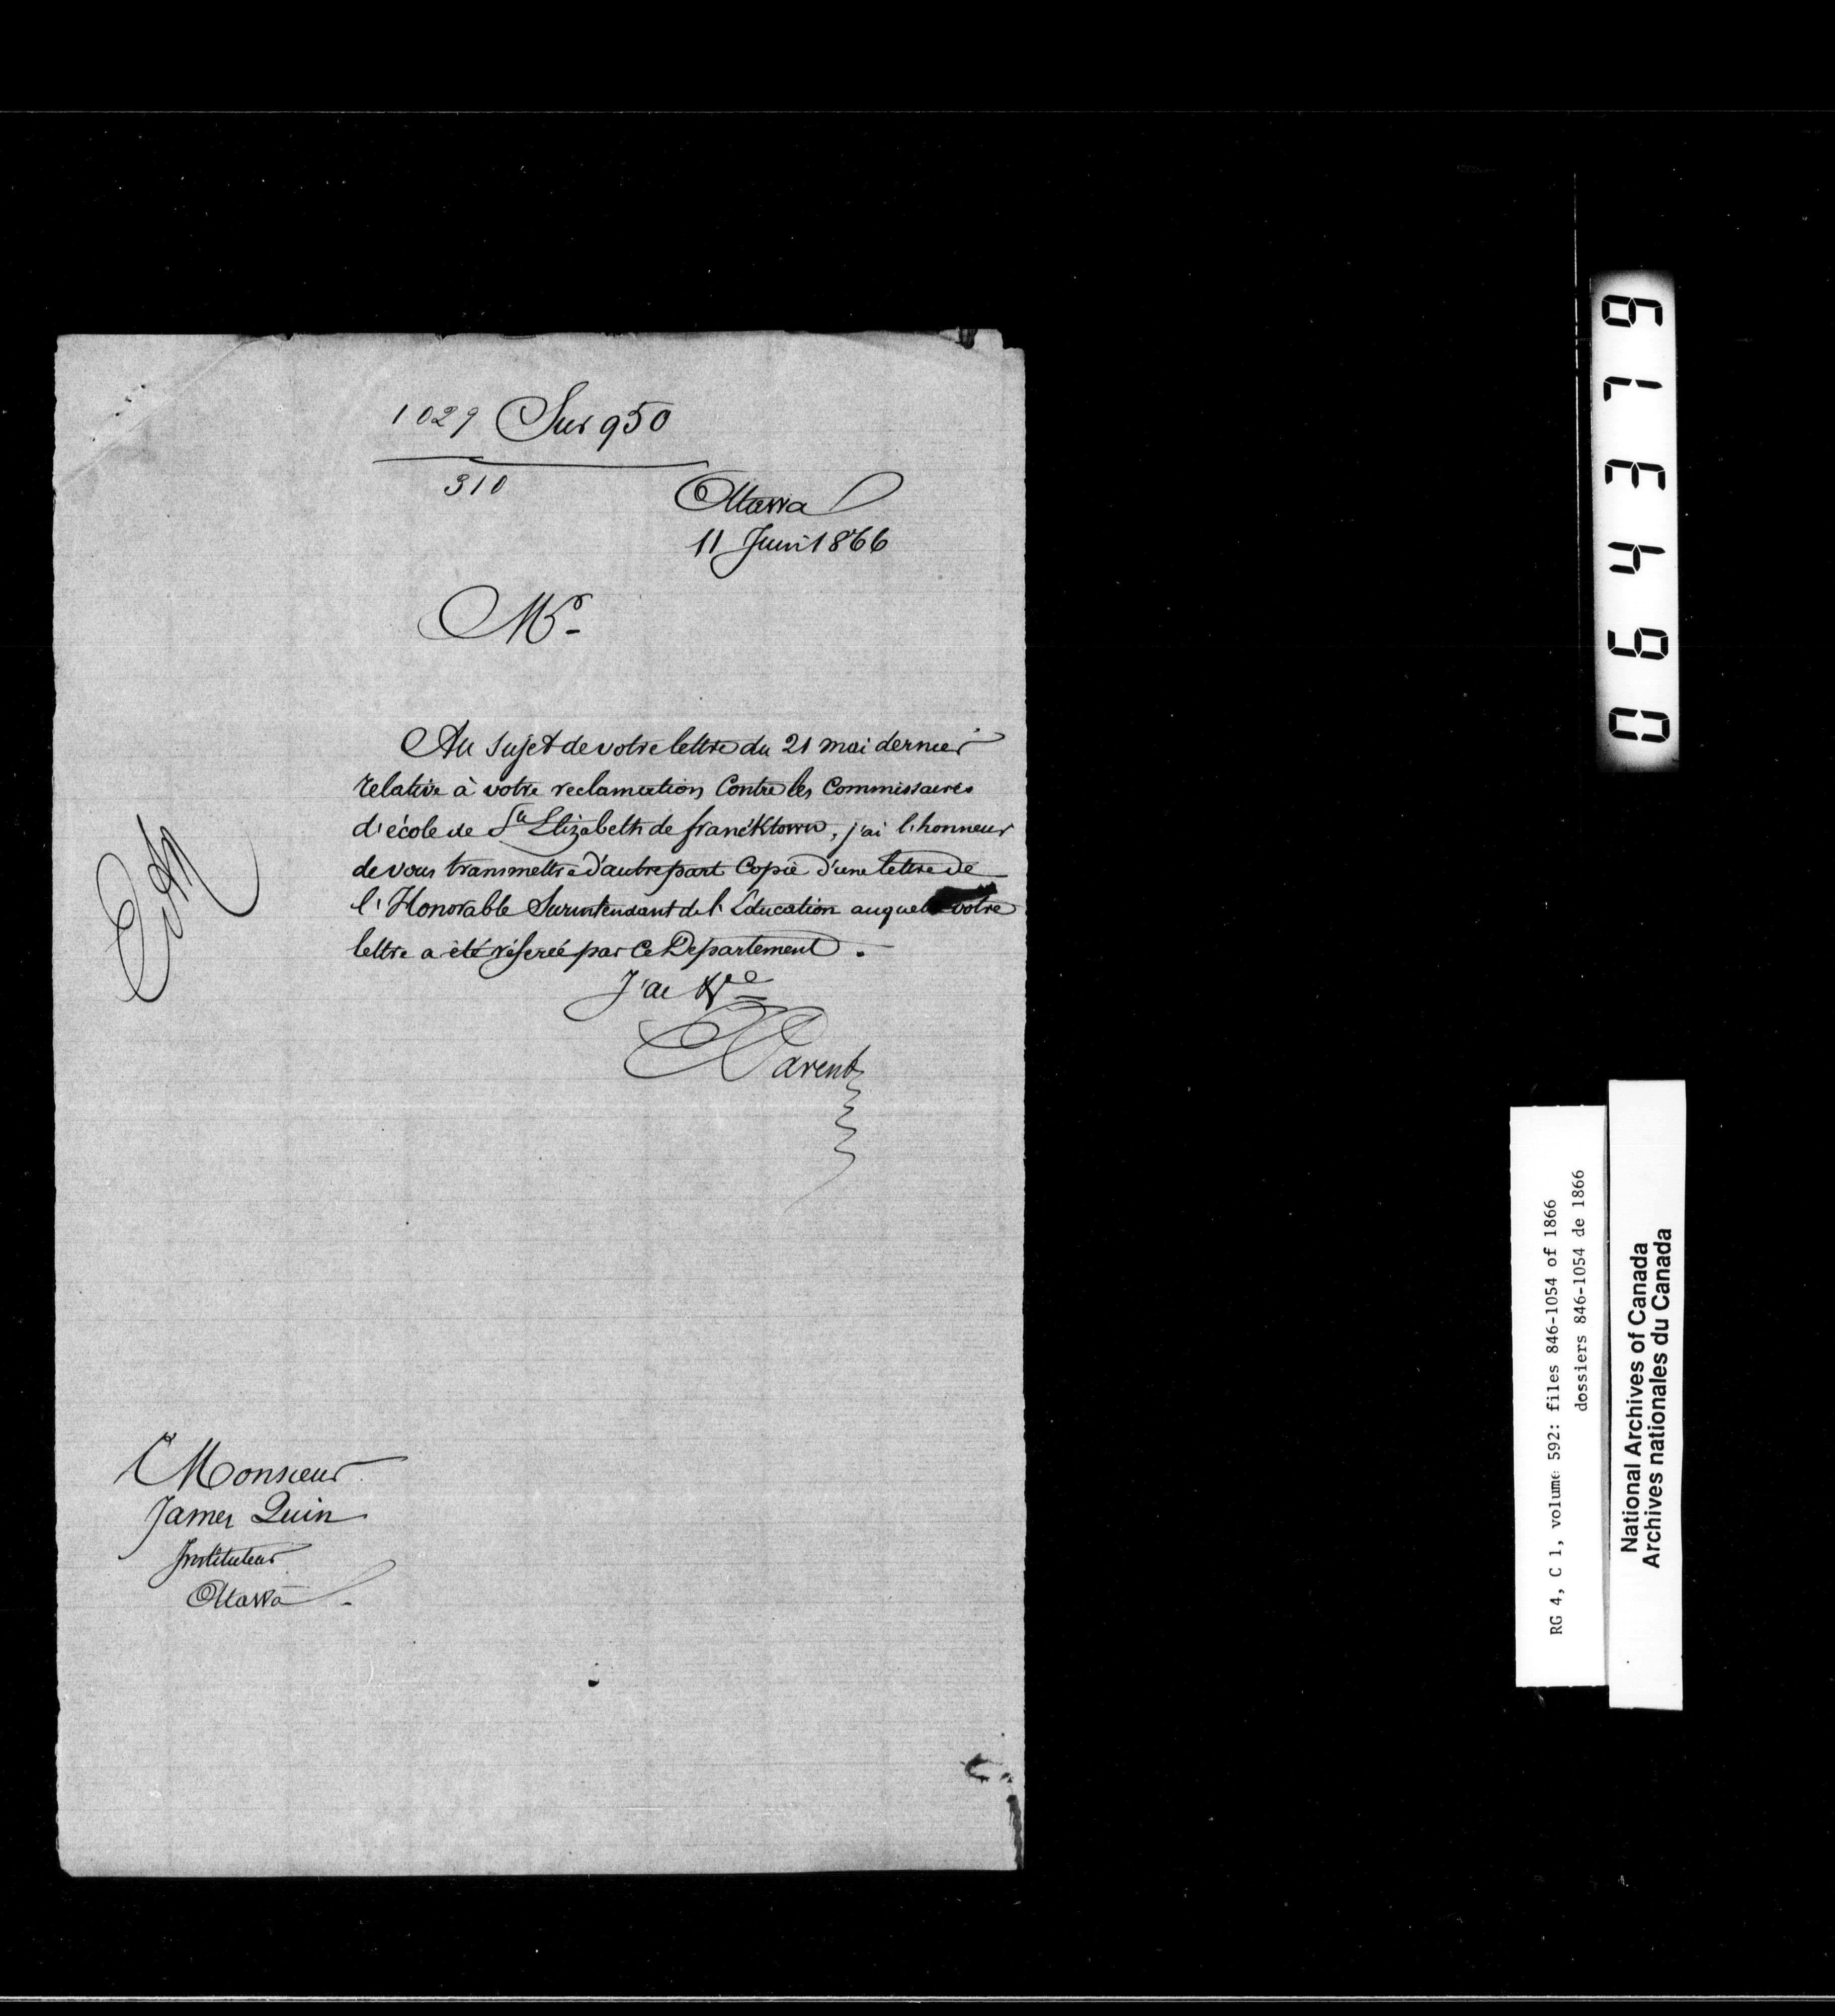 1029 Sur 950
310
Ottawa
11 Juin 1866
Mr
Au sujet de votre lettre du 21 mai dernier
relative à votre reclamation contre les Commissaires
d'école de Ste Elizabeth de franktown, j'ai l'honneur
de vous transmettre d'autre part Copie d'une lettre de
l'Honorable Surintendant de l'Education auquel votre
lettre a été réferée par ce Departement.
J'ai &ce
E Parent
Monsieur
James Quin
Instituteur
Ottawa
064379
RG 4, C 1, volume 592: files 846-1054 of 1866
dossiers 846-1054 de 1866
National Archives of Canada
Archives nationales du Canada